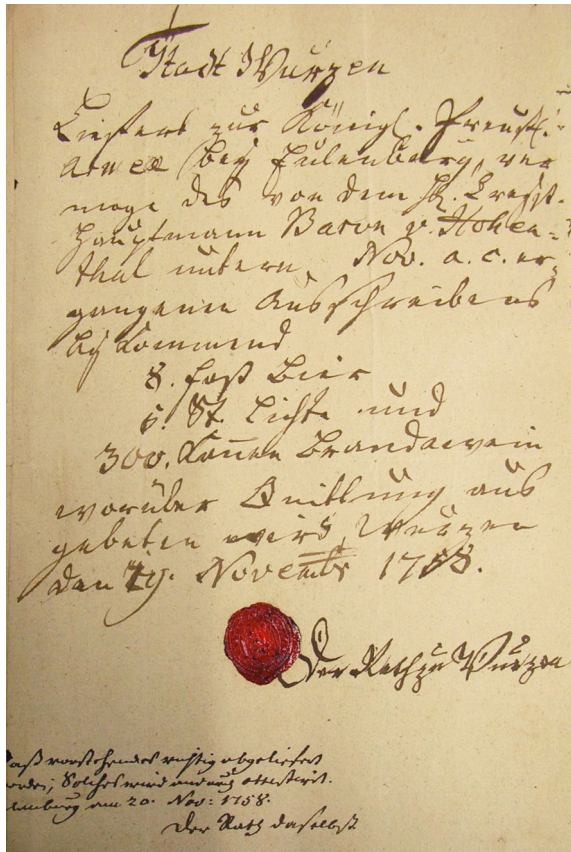 Stadt Wurzen
Liefert zur Königl. Preuß.
Armee bey Eulenburg, ver
möge des von dem H. Creyß-
Hauptmann Baron v. Hohen-
thal unterm Nov. a. c. er-
gangenen Ausschreibens
bey kommend
8. Faß Bier
6. St. Lichte und
300. Kannen Brandtewein
worüber Quittung aus
gebeten wird, Wurzen
den 19. Novembr 1758.
Der Rath zu Wurzen
aß vorstehendes richtig abgeliefert
orden, Solches wird andurch attestirt.
lenburg am 20. Nov: 1758.
Der Rath daselbst